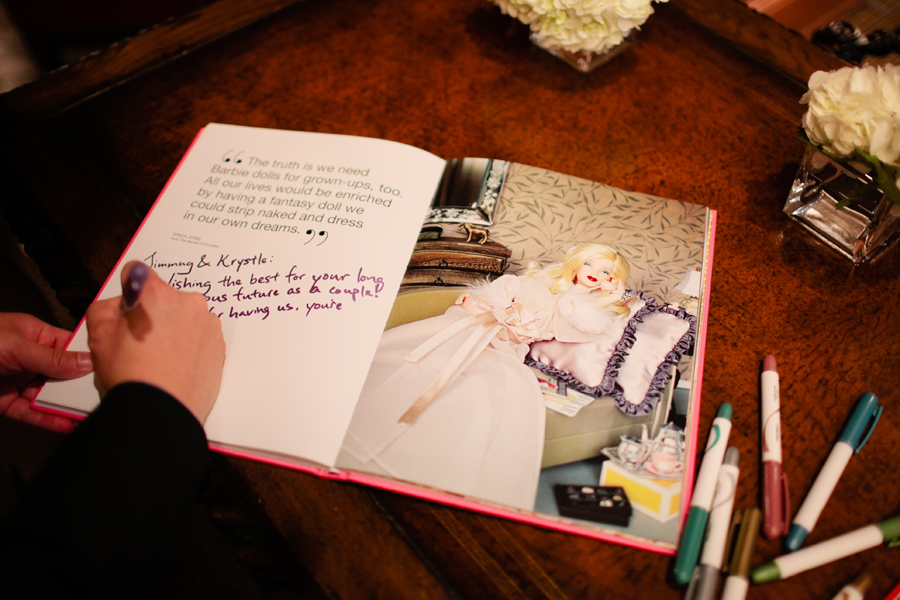 “ The truth is we need
Barbie dolls for grown-ups, too.
All our lives would be enriched
by having a fantasy doll we
could strip naked and dress
in our own dreams. ”
ERICA JONG
Jimmy & Krystle:
ishing the best for your long
ous future as a couple!
having us, you're